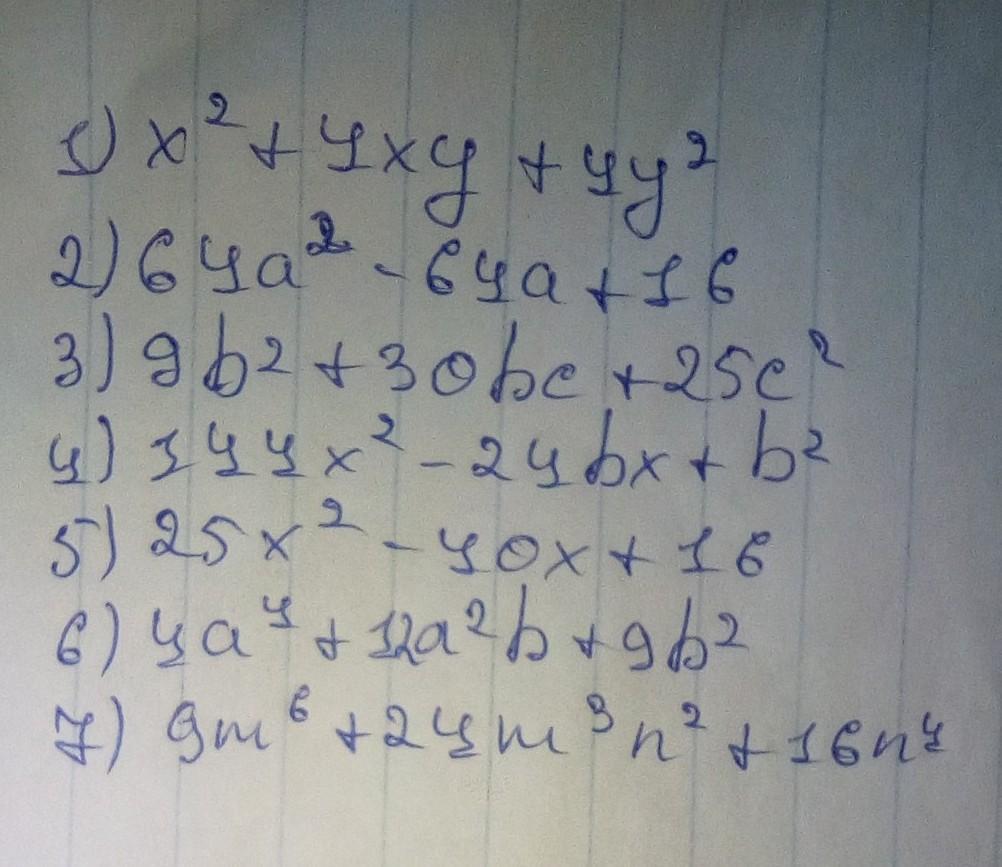 1) x² + 4xy + 4y²
2) 64a² - 64a + 16
3) 9b² + 30bc + 25c²
4) 144x² - 24bx + b²
5) 25x² - 40x + 16
6) 4a⁴ + 12a²b + 9b²
7) 9m⁶ + 24m³n² + 16n⁴